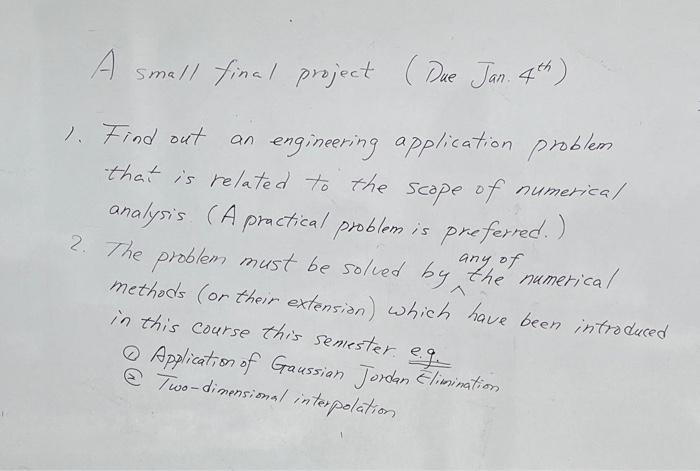 A small final project (Due Jan. 4th)
1. Find out an engineering application problem
that is related to the scope of numerical
analysis. (A practical problem is preferred.)
2. The problem must be solved by any of the numerical
methods (or their extension) which have been introduced
in this course this semester. e.g.
① Application of Gaussian Jordan Elimination
② Two-dimensional interpolation